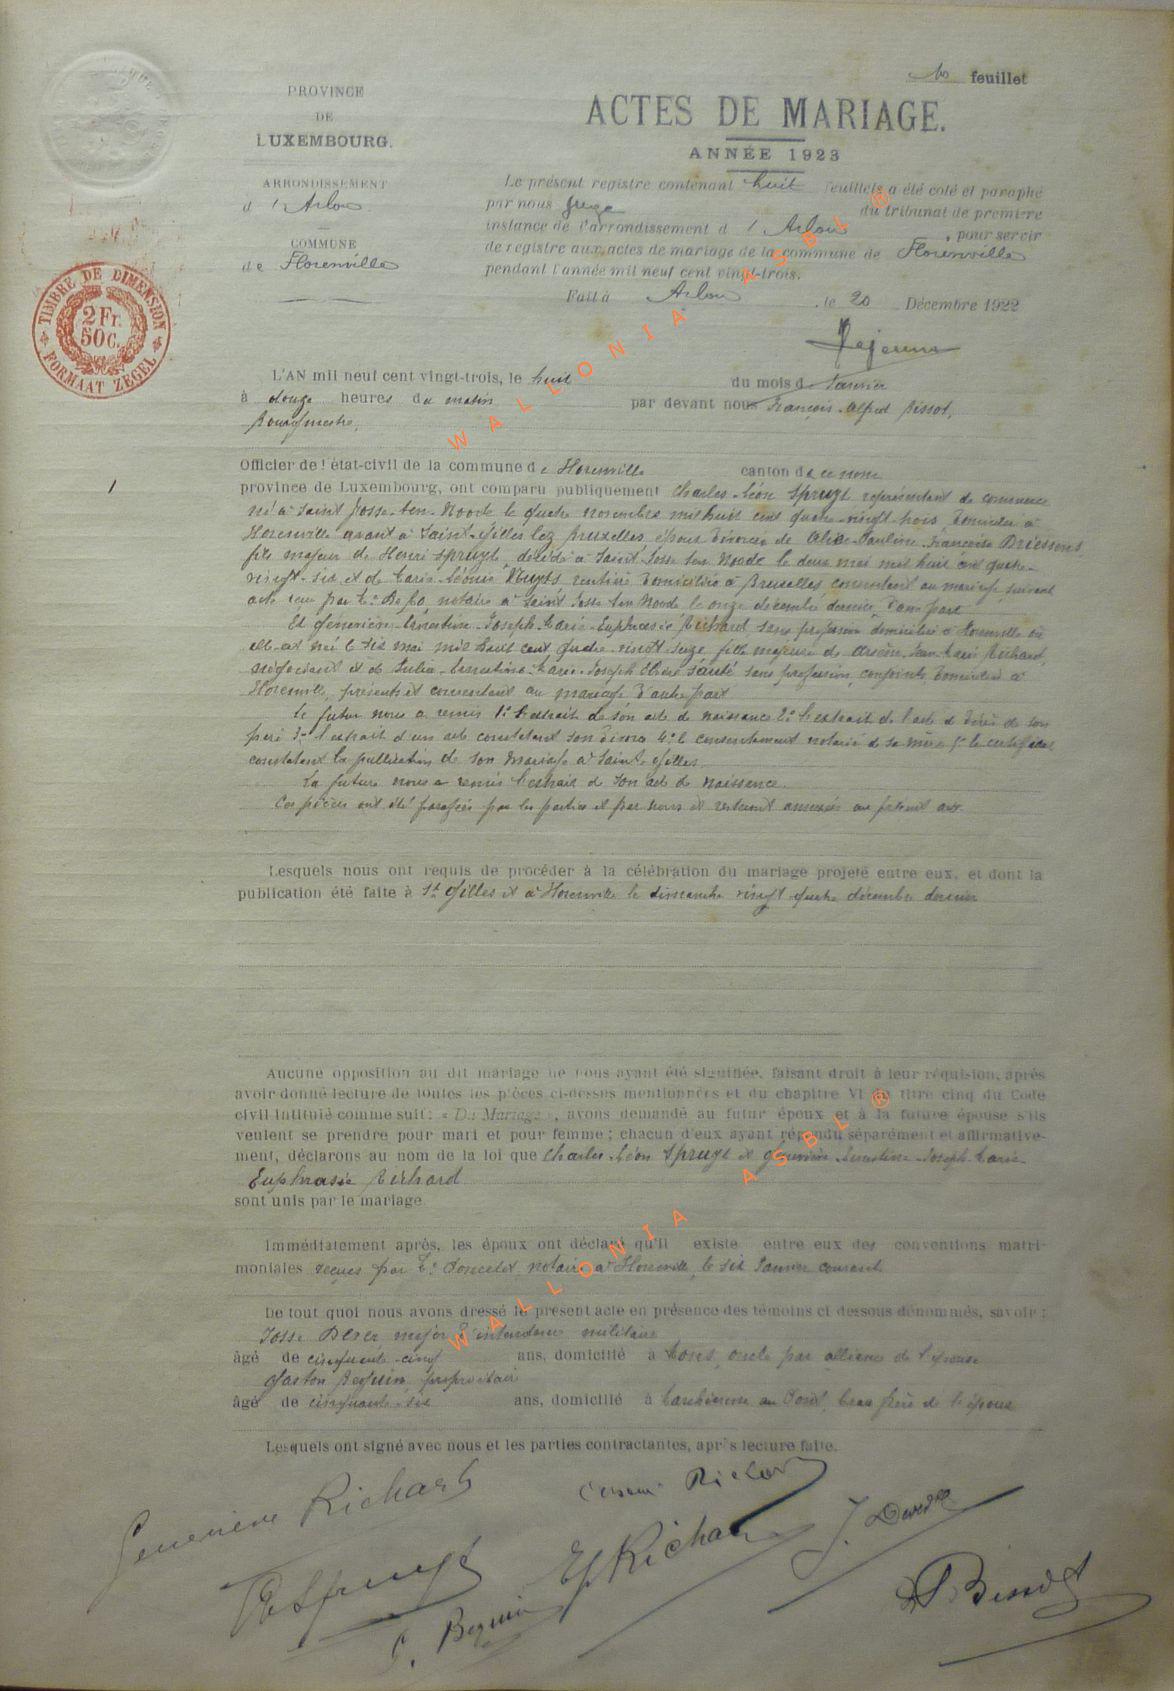 1er feuillet
PROVINCE
DE
LUXEMBOURG.
ARRONDISSEMENT
d'Arlon
COMMUNE
de Florenville
TIMBRE DE DIMENSION
2 Fr.
50 C.
FORMAAT ZEGEL
ACTES DE MARIAGE.
ANNÉE 1923
Le présent registre contenant huit feuillets a été coté et paraphé
par nous juge du tribunal de première
instance de l'arrondissement d'Arlon, pour servir
de registre aux actes de mariage de la commune de Florenville
pendant l'année mil neuf cent vingt-trois.
Fait à Arlon, le 20 Décembre 1922
1
L'AN mil neuf cent vingt-trois, le huit du mois de Janvier
à douze heures du matin par devant nous François-Alfred Bissot,
Bourgmestre,
Officier de l'état-civil de la commune de Florenville canton de ce nom
province de Luxembourg, ont comparu publiquement Charles-Léon Spruyt représentant de commerce
né à Saint Josse-ten-Noode le quatre novembre mil huit cent quatre-vingt-trois, domicilié à
Florenville avant à Saint-Gilles lez Bruxelles époux divorcé de Alice-Pauline-Françoise Driessens
fils majeur de Henri Spruyt, décédé à Saint Josse ten Noode le deux mai mil huit cent quatre-
vingt-six et de Marie-Léonie Nuyts rentière domiciliée à Bruxelles consentant au mariage suivant
acte reçu par Me notaire à Saint Josse ten Noode le onze décembre dernier, d'une part
Et Geneviève-Ernestine-Joseph-Marie-Euphrasie Richard sans profession domiciliée à Florenville où
elle est née le six mai mil huit cent quatre-vingt-seize fille majeure de Arsène-Jean-Marie Richard,
négociant et de Julie-Ernestine-Marie-Joseph sans profession, conjoints, domiciliés à
Florenville, présents et consentant au mariage d'autre part
Le futur nous a remis 1° l'extrait de son acte de naissance 2° l'extrait de l'acte de décès de son
père 3° l'extrait d'un acte constatant son divorce 4° le consentement notarié de sa mère 5° le certificat
constatant la publication de son mariage à Saint-Gilles.
La future nous a remis l'extrait de son acte de naissance.
Ces pièces ont été parafées par les parties et par nous et resteront annexées au présent acte.
Lesquels nous ont requis de procéder à la célébration du mariage projeté entre eux, et dont la
publication été faite à St Gilles et à Florenville le dimanche vingt-quatre décembre dernier
Aucune opposition au dit mariage ne nous ayant été signifiée, faisant droit à leur réquision, après
avoir donné lecture de toutes les pièces ci-dessus mentionnées et du chapitre VI du titre cinq du Code
civil intitulé comme suit : « Du Mariage », avons demandé au futur époux et à la future épouse s'ils
veulent se prendre pour mari et pour femme ; chacun d'eux ayant répondu séparément et affirmative-
ment, déclarons au nom de la loi que Charles-Léon Spruyt et Geneviève-Ernestine-Joseph-Marie
Euphrasie Richard
sont unis par le mariage
Immédiatement après, les époux ont déclaré qu'il existe entre eux des conventions matri-
moniales reçues par Me Poncelet notaire à Florenville, le six Janvier courant
De tout quoi nous avons dressé le présent acte en présence des témoins ci dessous dénommés, savoir :
Josse major d'intendance militaire
âgé de cinquante-cinq ans, domicilié à Mons, oncle par alliance de l'épouse
Gaston Bequin, propriétaire
âgé de cinquante-six ans, domicilié à Marchienne au Pont, beau frère de l'époux
Lesquels ont signé avec nous et les parties contractantes, après lecture faite.
Geneviève Richard
Arsène Richard
Spruyt
E Richard
G. Bequin
Bissot
WALLONIA ASBL ®
WALLONIA ASBL ®